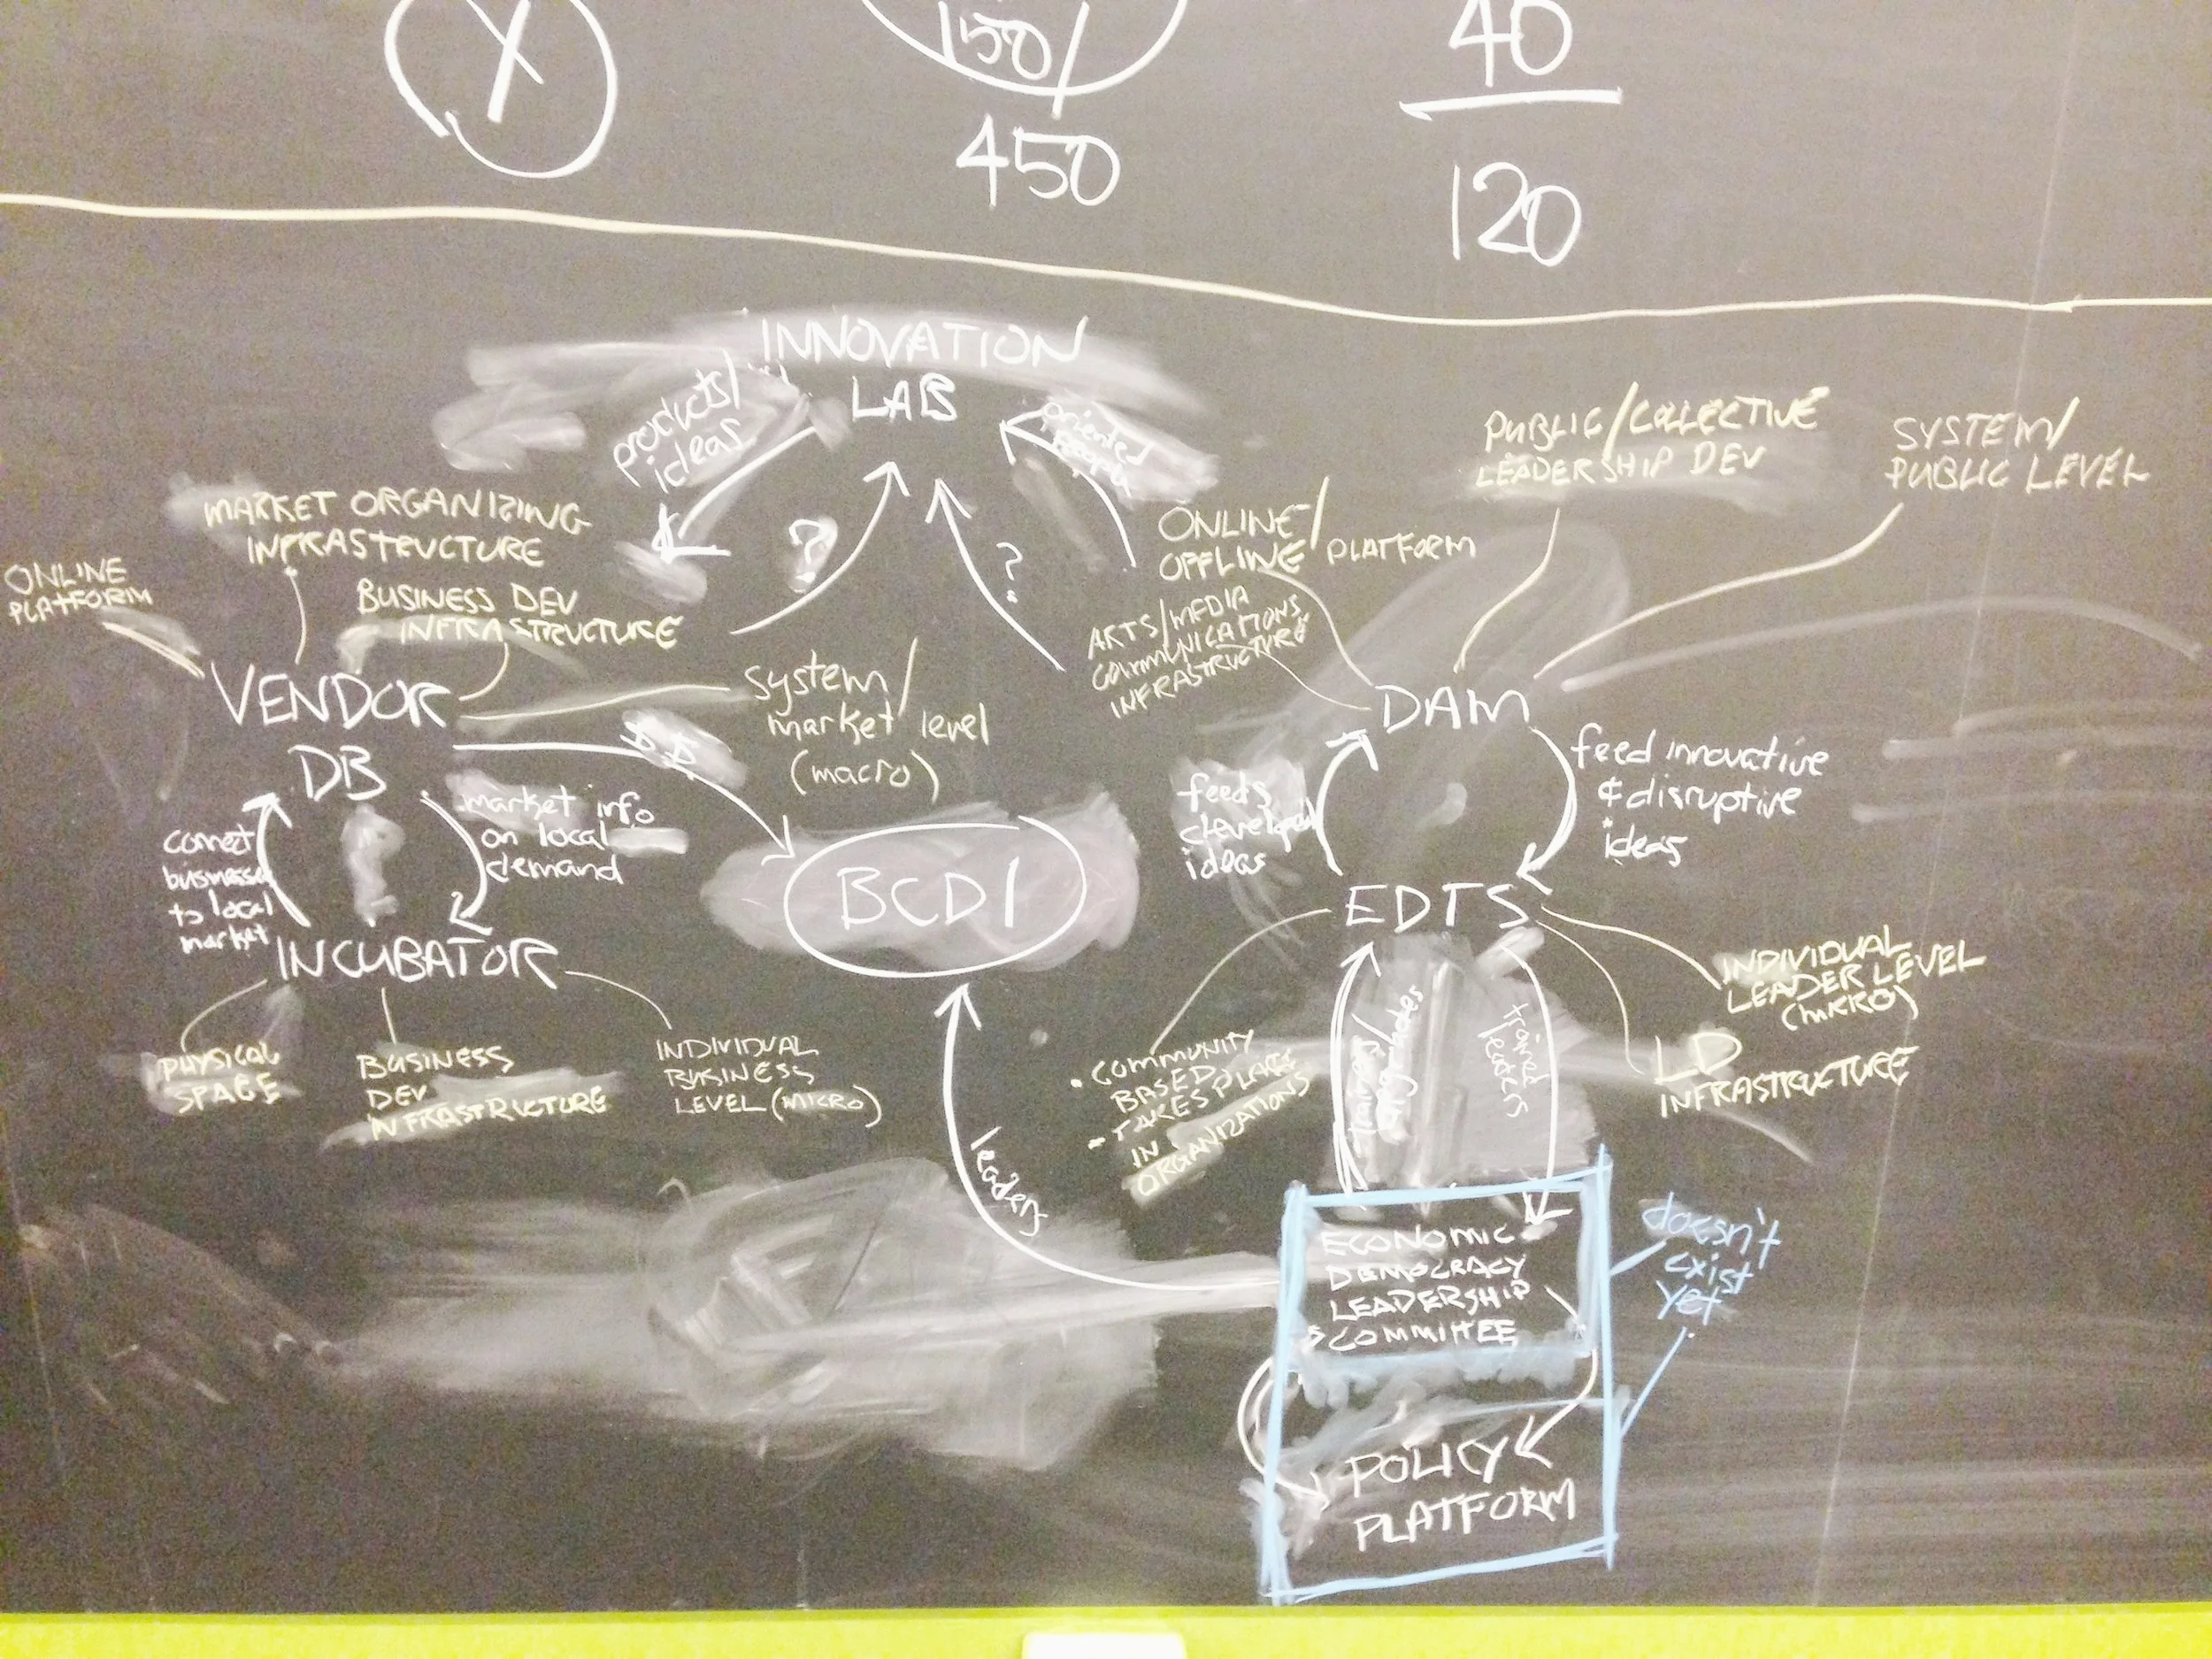 X
150/
450
40
120
INNOVATION
LAB
products/
ideas
oriented
people
?
?
MARKET ORGANIZING
INFRASTRUCTURE
ONLINE
PLATFORM
BUSINESS DEV
INFRASTRUCTURE
VENDOR
DB
system/
market level
(macro)
$$
market info
on local
demand
connect
businesses
to local
market
INCUBATOR
PHYSICAL
SPACE
BUSINESS
DEV
INFRASTRUCTURE
INDIVIDUAL
BUSINESS
LEVEL (MICRO)
BCDI
leaders
PUBLIC/COLLECTIVE
LEADERSHIP DEV
SYSTEM/
PUBLIC LEVEL
ONLINE/
OFFLINE PLATFORM
ARTS/MEDIA
COMMUNICATIONS
INFRASTRUCTURE
DAM
feeds
developed
ideas
feed innovative
& disruptive
ideas
EDTS
INDIVIDUAL
LEADER LEVEL
(MICRO)
LD
INFRASTRUCTURE
• COMMUNITY
BASED
- TAKES PLACE
IN
ORGANIZATIONS
trained
leaders
ECONOMIC
DEMOCRACY
LEADERSHIP
COMMITTEE
doesn't
exist
yet
POLICY
PLATFORM